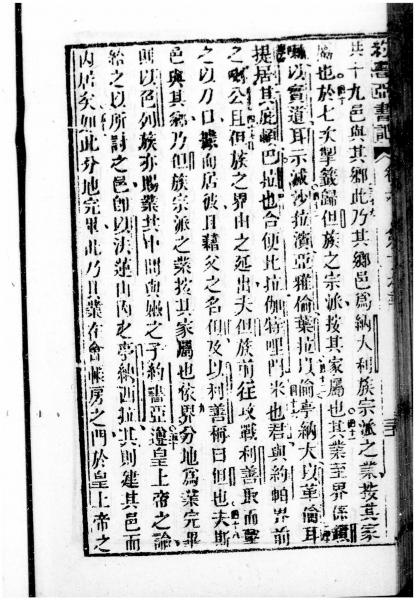 約書亞書記
共十九邑與其鄉此乃其鄉邑爲納大利族宗派之業按其家
屬也於七次掣籤歸但族之宗派按其家屬也其業至界係鎖
以實道耳示滅沙拉濱亞雅倫葉拉以倫亭納大以革倫耳
提居其庇頓巴拉也合便比拉伽特哩門米也君與約帕界前
之 公且但族之界由之延出夫但族前往攻戰利善取而擊
之以刀口據而居彼且藉父之名但及以利善稱曰但也夫斯
邑與其鄉乃但族宗派之業按其家屬也依界分地爲業完畢
則以色列族亦賜業其中間與嫩之子約書亞遵皇上帝之諭
給之以所討之邑卽以法蓮山內之亭納西拉其則建其邑而
內居矣如此分地完畢此乃且業在會帳房之門於皇上帝之